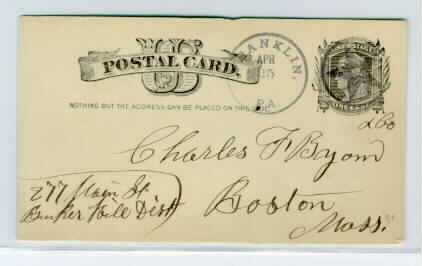 US
POSTAL CARD.
NOTHING BUT THE ADDRESS CAN BE PLACED ON THIS
FRANKLIN,
APR
25
PA
260
Charles F Byom
277 Main St
Bunker Hill Dist
Boston
Mass.